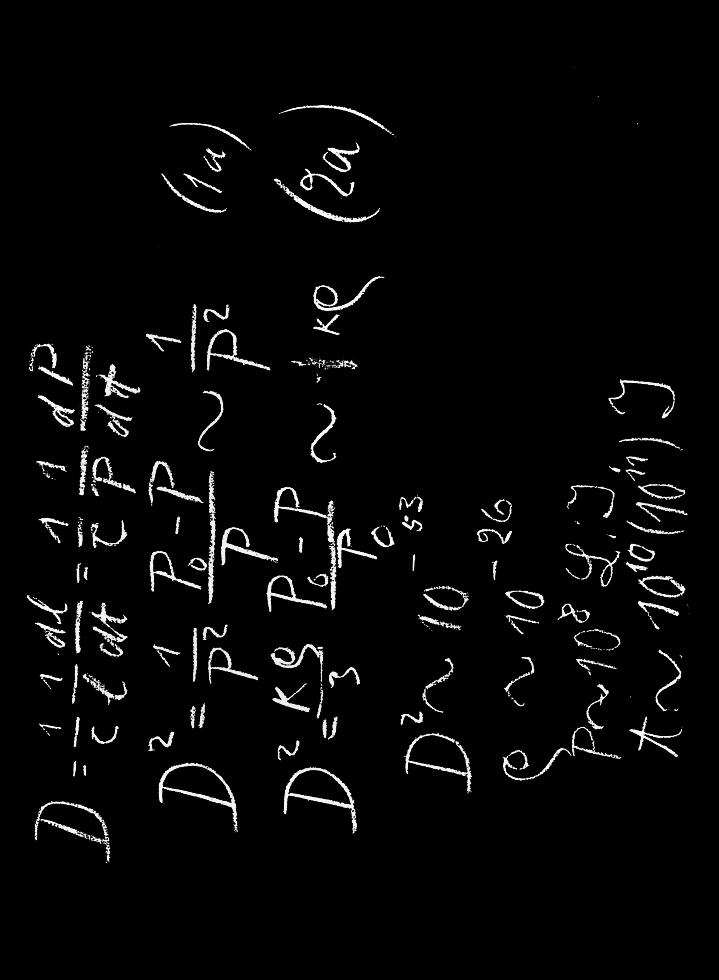 D = 1/c 1/l dl/dt = 1/c 1/P dP/dt
D² = 1/P² (P₀ − P)/P ~ 1/P² (1a)
D² = κρ/3 (P₀ − P)/P₀ ~ κρ (2a)
D² ~ 10⁻⁵³
ρ ~ 10⁻²⁶
P ~ 10⁸ L.J
t ~ 10¹⁰(10¹¹) J